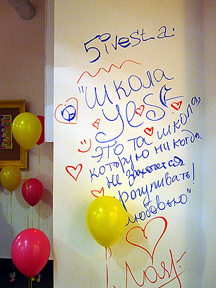 5'ivesta:
"школа
Yes
это та школа,
которую никогда
не захочется
прогуливать!
любовью"